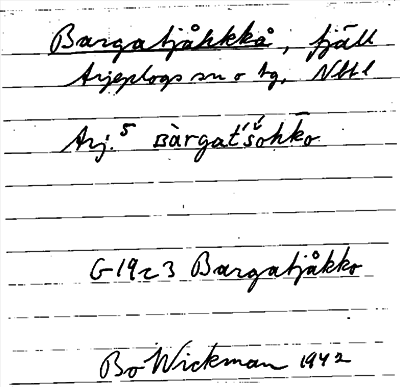 Bargatjåhkkå, fjäll
Arjeplogs sn o tg, Nbtl
Arj. 5 Bàrgat´š́ohkō
G-19c3 Bargatjåkko
Bo Wickman 1942